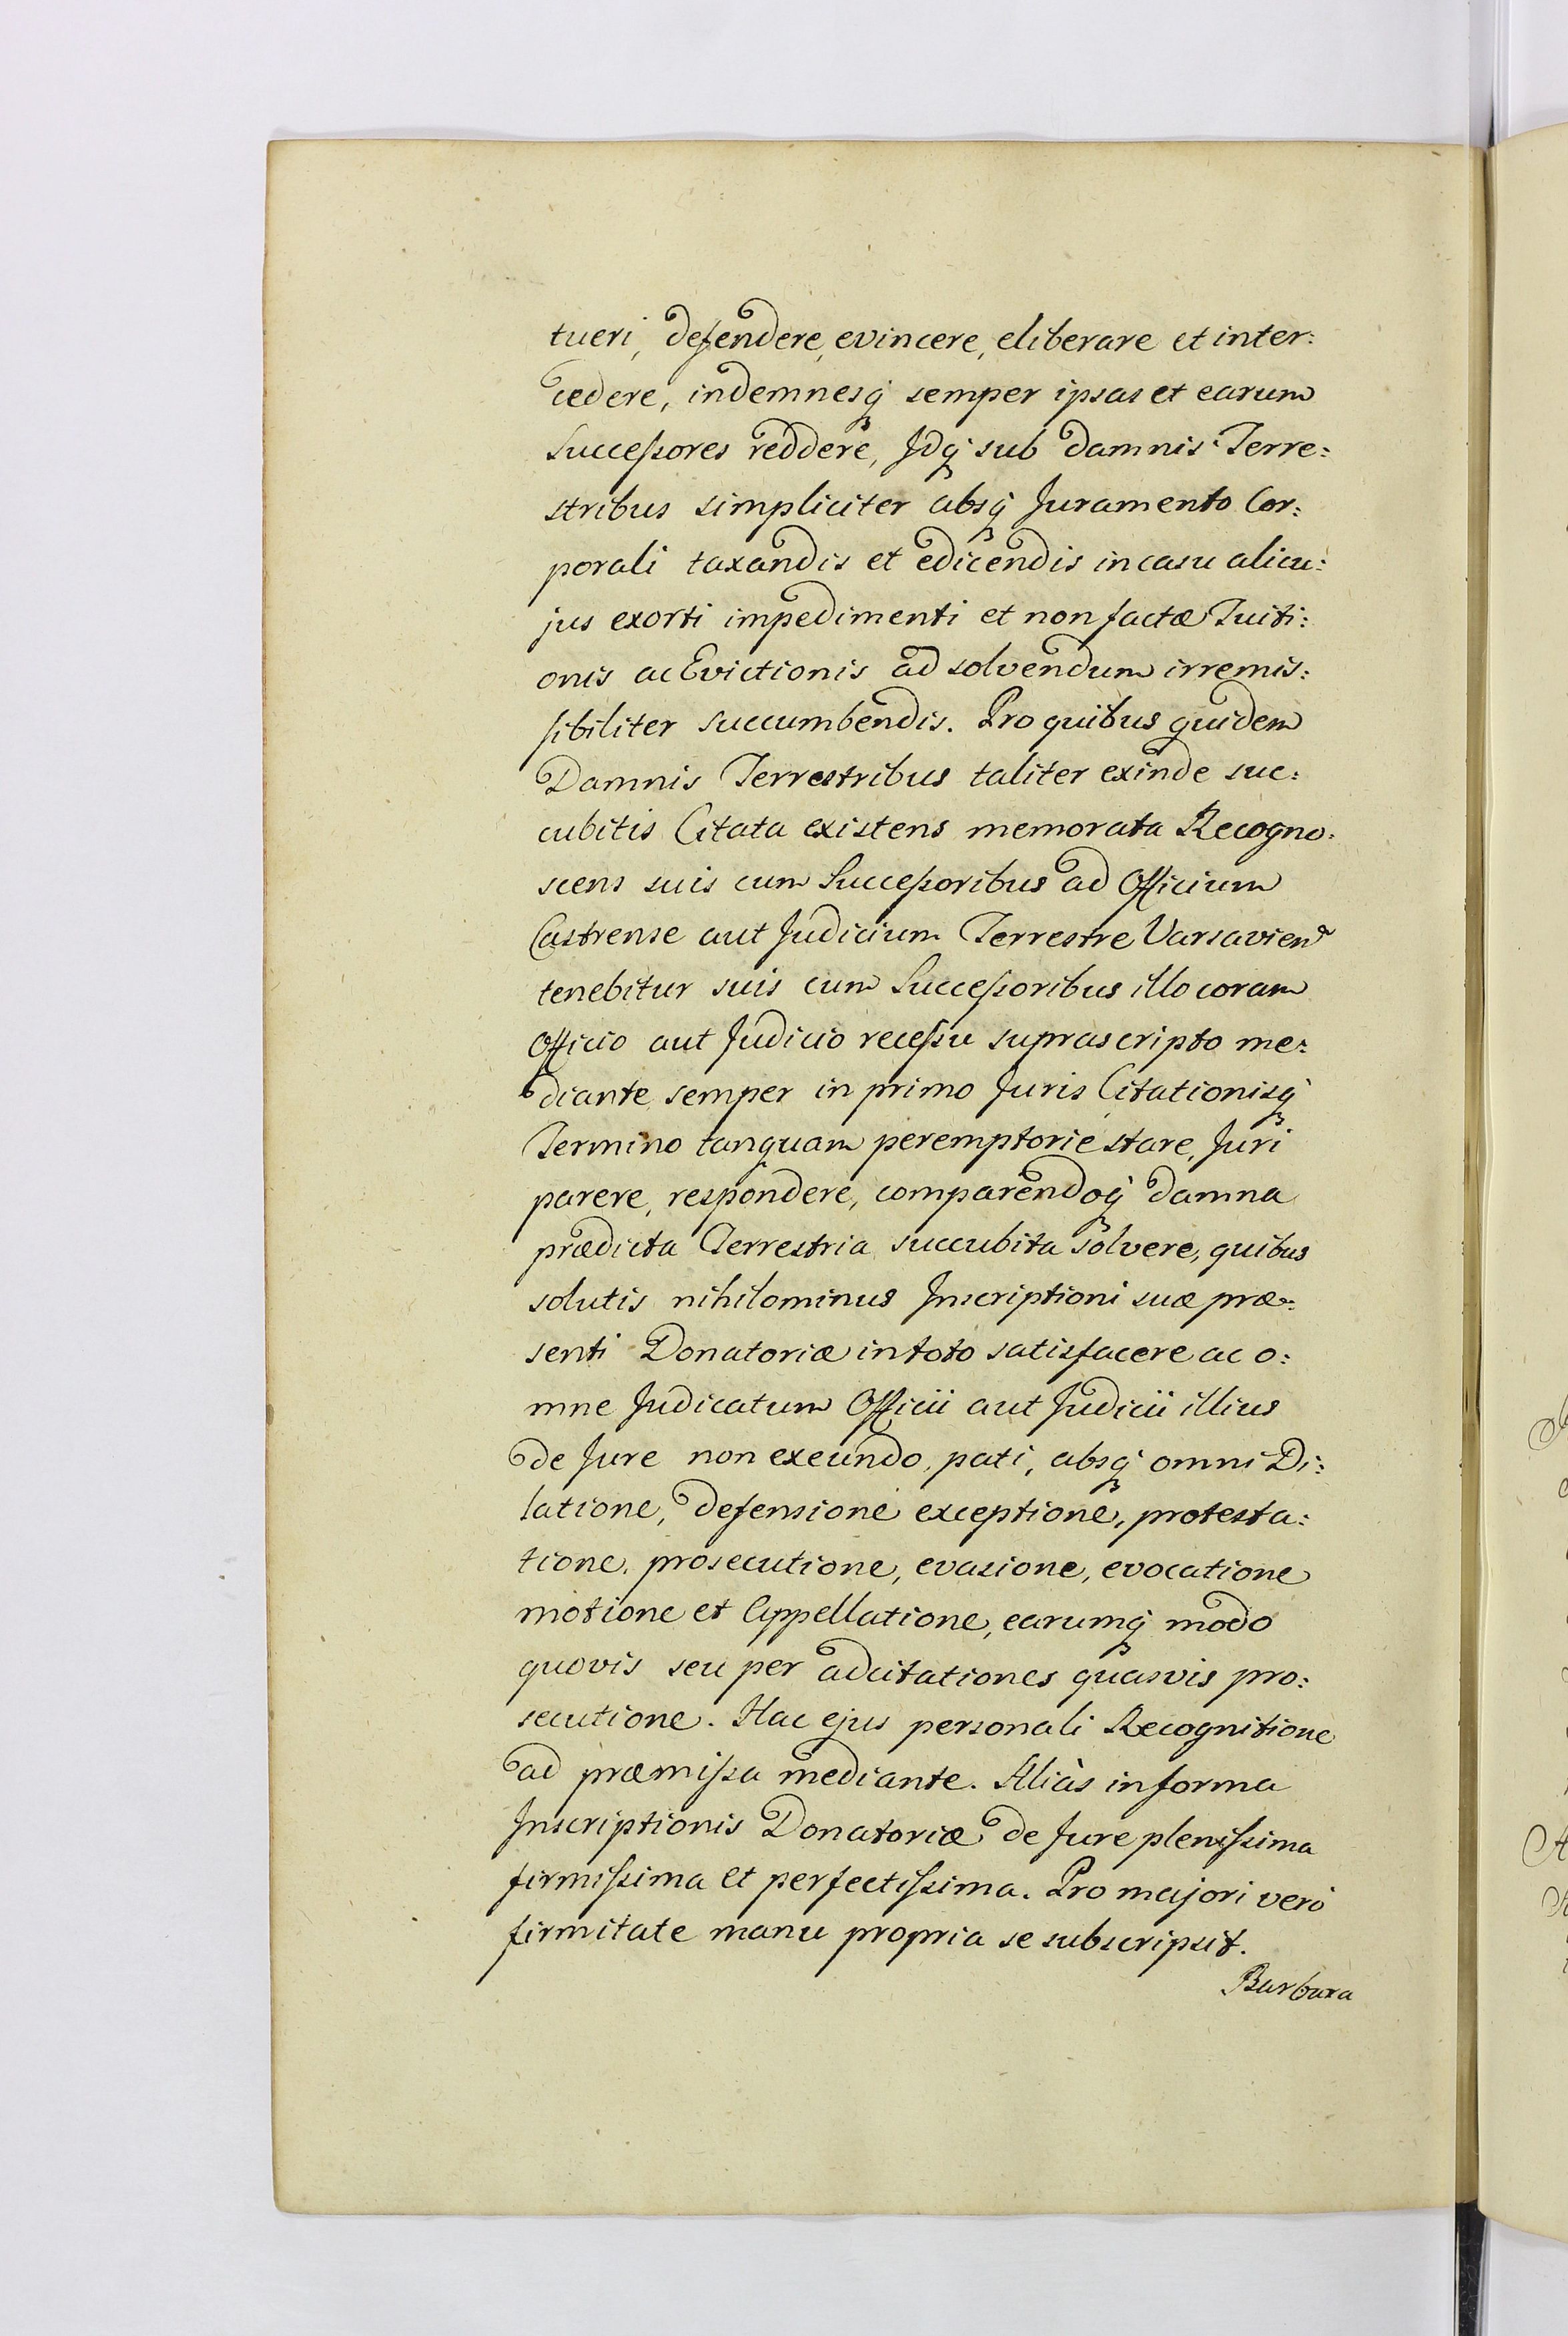 tueri, defendere, evincere, eliberare et inter:
cedere, indemnesq́ semper ipsas et earum
Succeſsores reddere, Idq́ sub damnis Terre:
stribus simpliciter absq́ Juramento Cor:
porali taxandis et edicendis in casu alicu:
jus exorti impedimenti et non factæ Tuiti:
onis ac Evictionis ad solvendum irremis:
sibiliter succumbendis. Pro quibus quidem
Damnis Terrestribus taliter exinde suc:
cubitis Citata existens memorata Recogno:
scens suis cum Succeſsoribus ad Officium
Castrense aut Judicium Terrestre Varsavien
tenebitur suis cum Succeſsoribus illo coram
Officio aut Judicio receſsu suprascripto me:
diante semper in primo Juris Citationisq́
Termino tanquam peremptorie stare, Juri
parere, respondere, comparendoq́ damna
prædicta Terrestria succubita solvere, quibus
solutis nihilominus Inscriptioni suæ præ:
senti Donatoriæ in toto satisfacere ac o:
mne Judicatum Officii aut Judicii illius
de Jure non exeundo pati, absq́ omni Di:
latione, defensione exceptione, protesta:
tione, prosecutione, evasione, evocatione
motione et Appellatione, earumq́ modo
quovis seu per adcitationes quasvis pro:
secutione. Hac ejus personali Recognitione
ad præmiſsa mediante. Aliàs in forma
Inscriptionis Donatoriæ de Jure pleniſsima
firmiſsima et perfectiſsima. Pro majori verò
firmitate manu propria se subscripsit.
Barbara